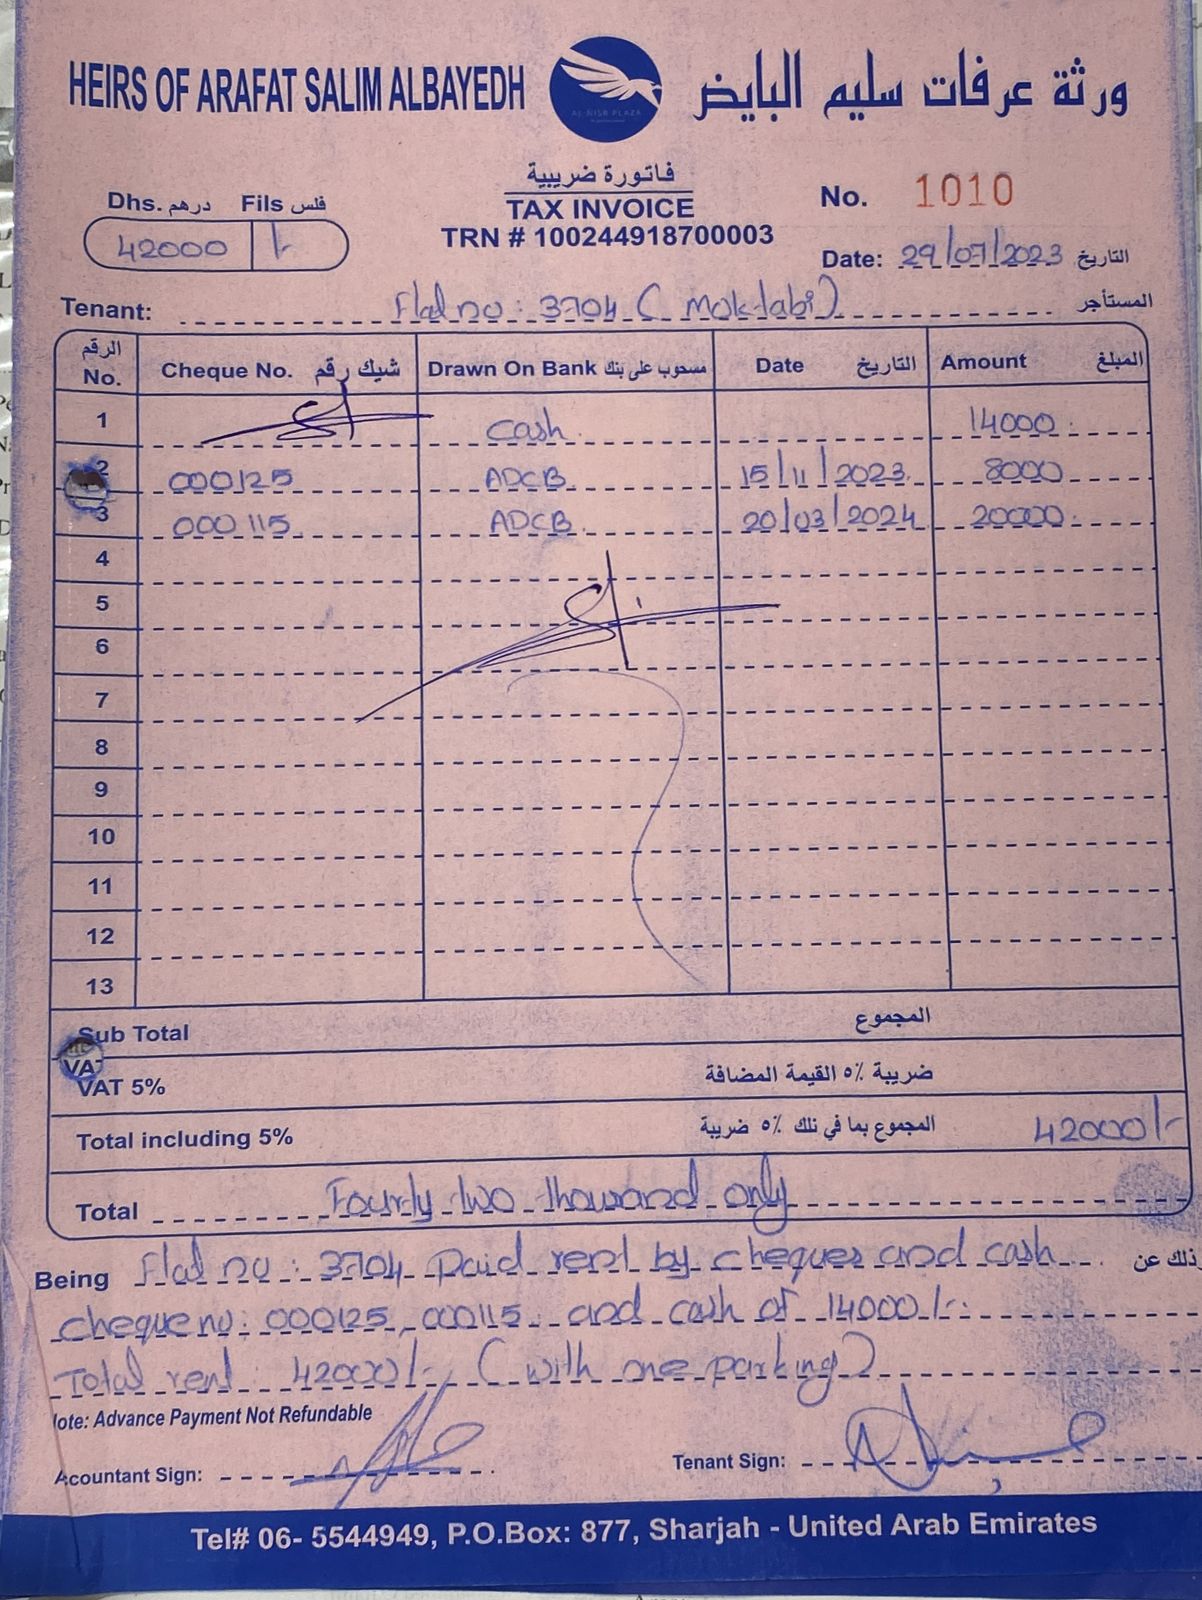 HEIRS OF ARAFAT SALIM ALBAYEDH
ورثة عرفات سليم البايض
AL NISR PLAZA
فاتورة ضريبية
TAX INVOICE
TRN # 100244918700003
Dhs. درهم Fils فلس
42000 /-
No. 1010
Date: 29/07/2023 التاريخ
Tenant: Flat no : 3704 ( Maktabi) المستأجر
الرقم No. Cheque No. شيك رقم Drawn On Bank مسحوب على بنك Date التاريخ Amount المبلغ
1 cash 14000
2 000125 ADCB 15/11/2023 8000
3 000115 ADCB 20/03/2024 20000
4
5
6
7
8
9
10
11
12
13
Sub Total المجموع
VAT 5% ضريبة ٥٪ القيمة المضافة
Total including 5% المجموع بما في ذلك ٥٪ ضريبة 42000/-
Total Fourty two thousand only
Being Flat no : 3704 Paid rent by cheques and cash ذلك عن
cheque no: 000125, 000115 and cash of 14000/-
Total rent : 42000/- ( with one parking)
lote: Advance Payment Not Refundable
Acountant Sign:
Tenant Sign:
Tel# 06- 5544949, P.O.Box: 877, Sharjah - United Arab Emirates